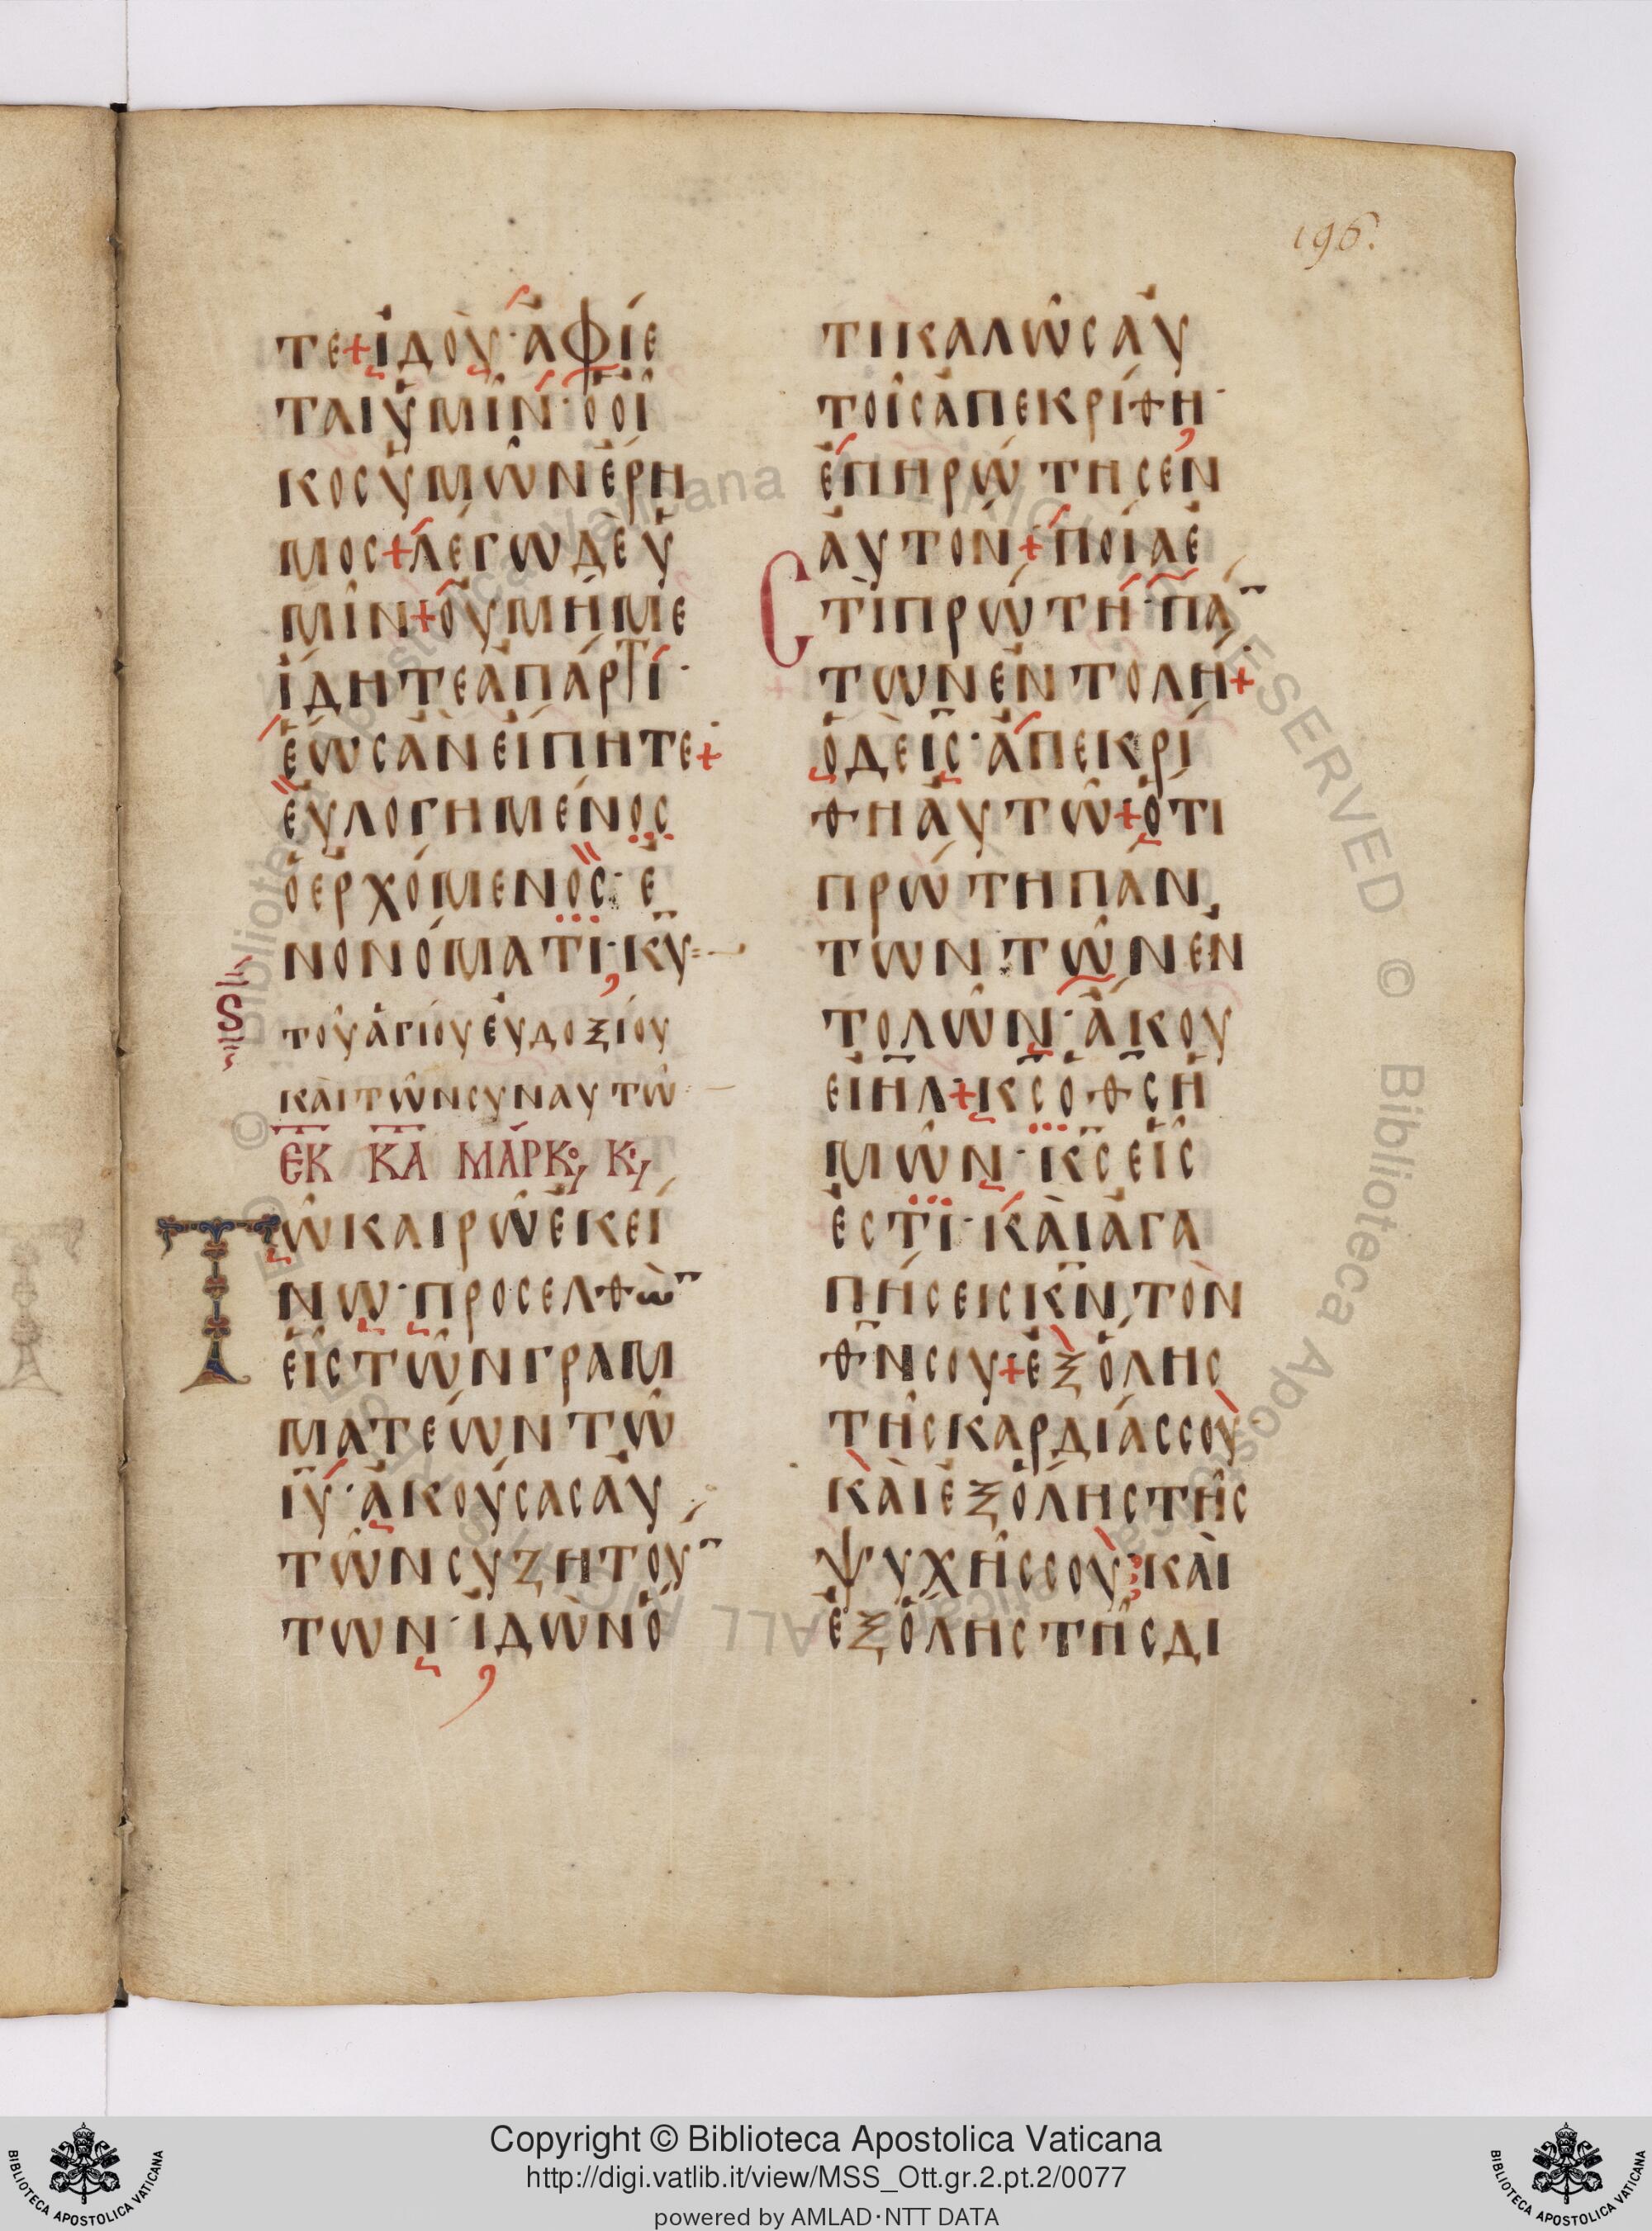 196.
ΤΕ+ἸΔΟῪ·ἈΦΊΕ
ΤΑΙῪΜῖΝ·ὉΟἶ
ΚΟСΥΜῶΝἘΡΗ
ΜΟС+ΛΈΓωΔῈΥ
ΜῖΝ+ΟΥΜΉΜΕ
ἼΔΗΤΕἈΠΆΡΤΙ·
ἝωСἊΝΕἼΠΗΤΕ+
ΕΥΛΟΓΗΜΈΝΟС
ὉΕΡΧΌΜΕΝΟС·Ἐ
ΝΟΝΌΜΑΤΙ·ΚΥ
ΤΟΥἉΓΊΟΥΕΥΔΟΞΊΟΥ
ΚΑῚΤῶΝСΥΝΑΥΤῶ
ΕΚ ΚΑ ΜΆΡΚΟ, Κ,
ΤῶΚΑΙΡῶἘΚΕΊ
Νω·ΠΡΟСΕΛΘῺ¯
ΕἷСΤῶΝΓΡΑΜ
ΜΑΤΈωΝΤῶ
ΙΥ·ἈΚΟΎСΑСΑΥ
ΤῶΝСΥΖΗΤΟΎ¯
ΤωΝ·ἸΔῺΝὉ
ΤΙΚΑΛῶСΑΥ
ΤΟῖСἈΠΕΚΡΊΘΗ·
ἘΠΗΡΏΤΗСΕΝ
ΑΥΤΟΝ+ΠΟΊΑἘ
СΤῚΠΡΏΤΗ·ΠΆ¯
ΤωΝἘΝΤΟΛΗ+
ὉΔῈΙС·ἈΠΕΚΡΊ
ΘΗΑΥΤῶ+ὍΤΙ
ΠΡΏΤΗΠΆΝ
ΤωΝΤῶΝἘΝ
ΤΟΛῶΝ·ἌΚΟΥ
ΕΙΗΛ+ΚСὉΘСἩ
ΜῶΝ·ΚСΕἷС
ἘСΤῚ·ΚΑῚἈΓΑ
ΠΉСΕΙСΚΝΤῸΝ
ΘΝСΟΥ+ἘΞὍΛΗС
ΤΗСΚΑΡΔΊΑССΟΥ
ΚΑῚἘΞὍΛΗСΤΗС
ΨΥΧΗССΟΥ·ΚΑῚ
ἘΞὍΛΗСΤΗСΔΙ
Copyright © Biblioteca Apostolica Vaticana
http://digi.vatlib.it/view/MSS_Ott.gr.2.pt.2/0077
powered by AMLAD·NTT DATA
BIBLIOTECA APOSTOLICA VATICANA
BIBLIOTECA APOSTOLICA VATICANA